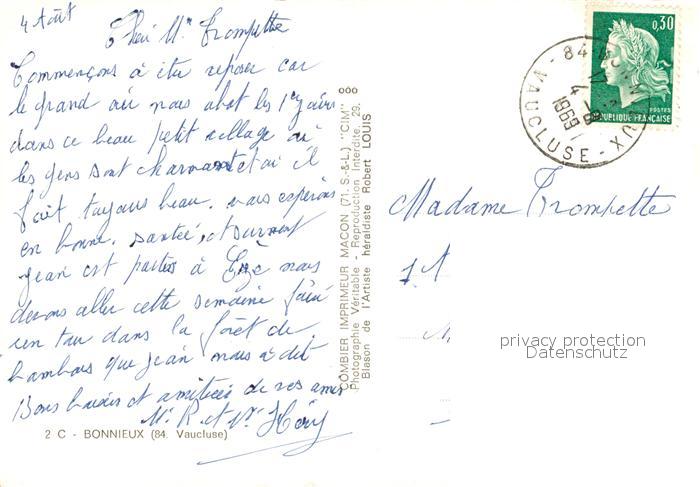 4 Août
Chère Mme Trompette
Commençons à être reposer car
le grand air nous abat les 1er jours
dans ce beau petit village où
les gens sont charmant et où il
fait toujours beau. vous espérons
en bonne santée, et surment
Jean est parties à nous
devons aller cette semaine faire
un tau dans la forêt de
bambous que Jean nous a dit
Bons baisers et amitiées de vos amis
Mr R. et Mme
2 C - BONNIEUX (84. Vaucluse)
COMBIER IMPRIMEUR MACON (71. S.-&-L.) "CIM"
Photographie Véritable - Reproduction Interdite. 29.
Blason de l'Artiste héraldiste Robert LOUIS
0,30
POSTES
REPUBLIQUE FRANÇAISE
84 BONNIEUX
VAUCLUSE
4 - 8
1969
Madame Trompette
privacy protection
Datenschutz